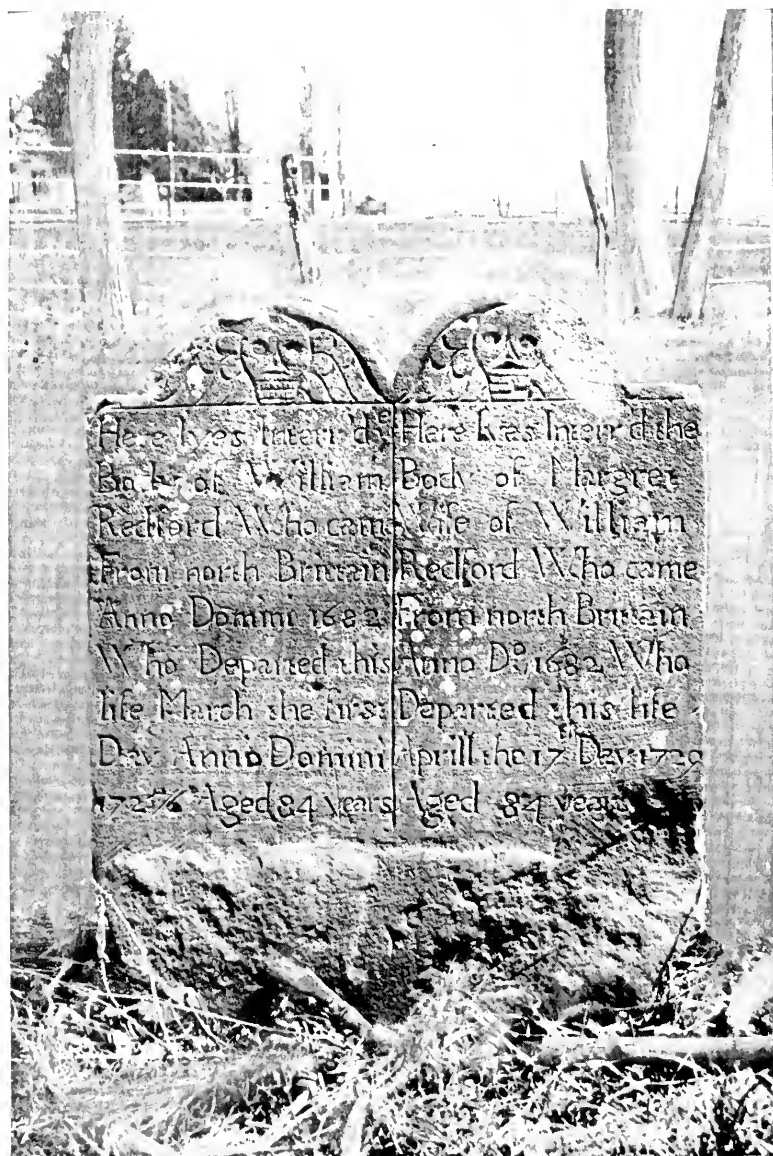 Here lyes Interr'd yᵉ
Body of William
Redford Who came
From north Brittain
Anno Domini 1682
Who Departed this
life March the first
Day Anno Domini
Aged 84 years
Here lyes Interr'd the
Body of Margret
Wife of William
Redford Who came
From north Brittain
Anno Dᵒ, 1682 Who
Departed this life
Aprill the 17ᵗʰ Day 1729
Aged 84 years